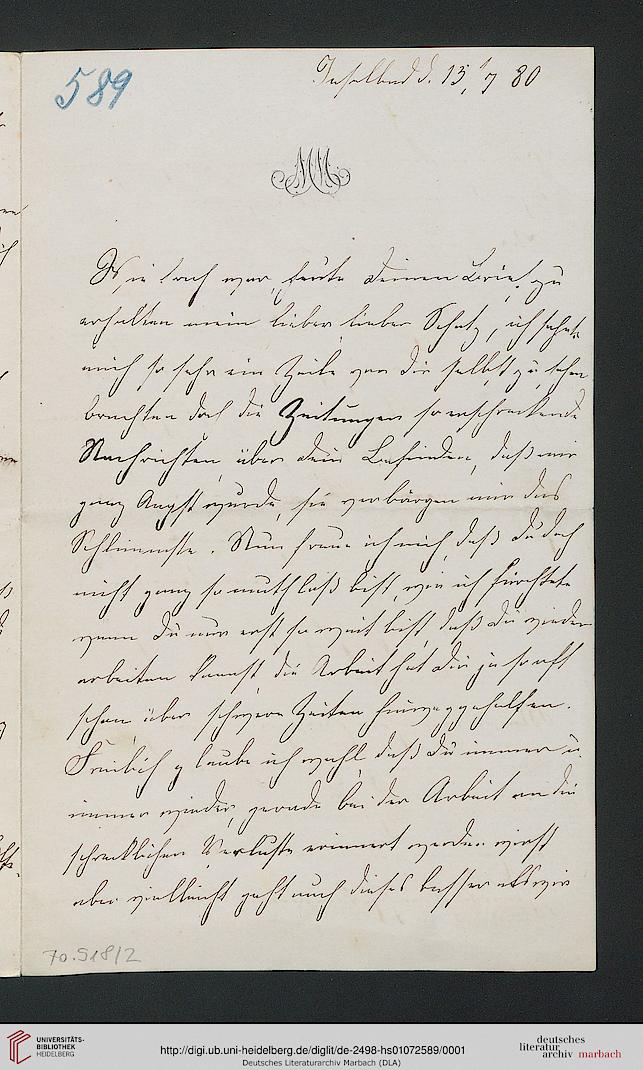 589
Inselbad d. 13/7 80
MM
Wie lach war, heute Deinen Brief zu
erhalten mein lieber lieber Schatz, ich sehnte
mich so sehr ein Zeile von Dir selbst zu sehen
brachten doch die Zeitungen so erschreckende
Nachrichten über Dein Befinden, daß mir
ganz Angst wurde, sie verbärgen mir das
Schlimmste. Nun freue ich mich, daß Du doch
nicht ganz so muthlos bist, wie ich fürchtete
wenn Du nur erst so weit bist, daß Du wieder
arbeiten kannst, die Arbeit hat Dir ja so oft
schon über schwere Zeiten hinweggeholfen.
Freilich glaube ich wohl daß Du immer u.
immer wieder, gerade bei der Arbeit an die
schrecklichen Verluste erinnert werden wirst
aber vielleicht geht auch dieses besser als wir
70.518/2
UNIVERSITÄTS-
BIBLIOTHEK
HEIDELBERG
http://digi.ub.uni-heidelberg.de/diglit/de-2498-hs01072589/0001
Deutsches Literaturarchiv Marbach (DLA)
deutsches
literatur
archiv marbach